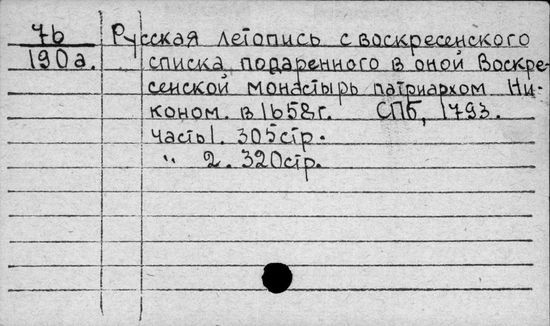 7б Русская летопись с воскресенского
190а. списка подаренного в оной Воскре-
сенской монастырь патриархом Ни-
коном. в 1658 г. СПб, 1793.
часть 1. 305 стр.
" 2. 320 стр.